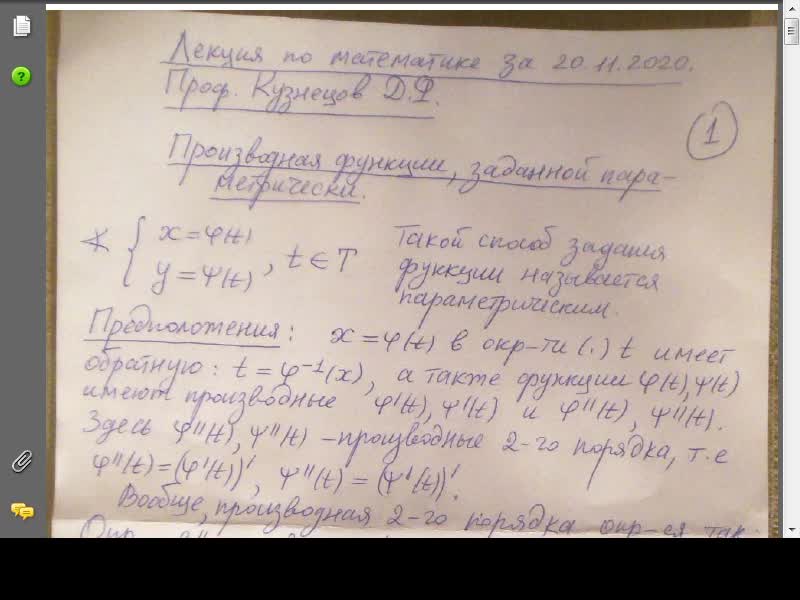 Лекция по математике за 20.11.2020.
Проф. Кузнецов Д.Ф.
1
Производная функции, заданной пара-
метрически.
{ x = φ(t)
y = ψ(t) , t ∈ T
Такой способ задания
функции называется
параметрическим.
Предположения: x = φ(t) в окр-ти (.) t имеет
обратную: t = φ⁻¹(x), а также функции φ(t), ψ(t)
имеют производные φ'(t), ψ'(t) и φ''(t), ψ''(t).
Здесь φ''(t), ψ''(t) – производные 2-го порядка, т.е
φ''(t) = (φ'(t))', ψ''(t) = (ψ'(t))'.
Вообще, производная 2-го порядка опр-ся так:
Опр.